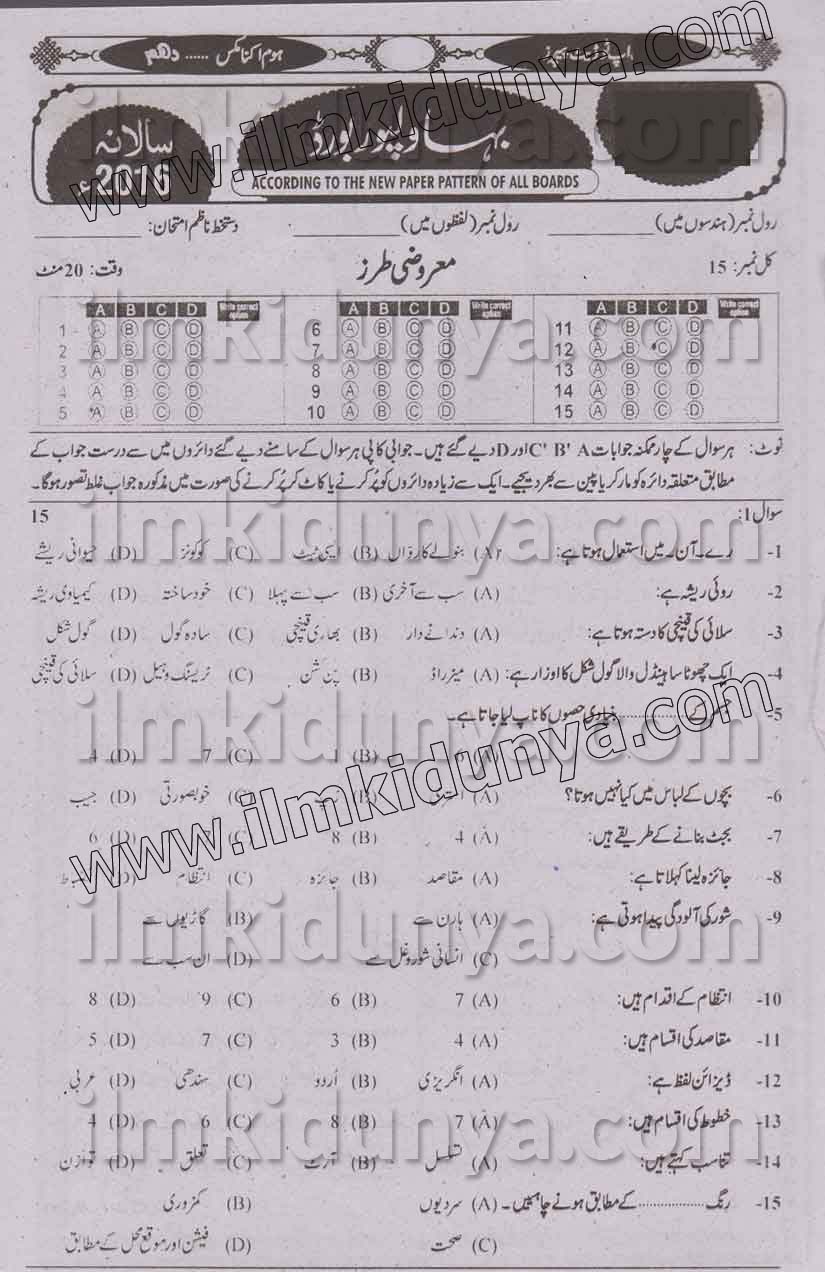 ہوم اکنامکس ...... دہم
بہاولپور بورڈ
سالانہ
2016ء
ACCORDING TO THE NEW PAPER PATTERN OF ALL BOARDS
رول نمبر (ہندسوں میں) ____________ رول نمبر (لفظوں میں) ____________ دستخط ناظم امتحان: ____________
کل نمبر: 15 معروضی طرز وقت: 20 منٹ
A B C D Write correct option A B C D Write correct option A B C D Write correct option
1- A B C D 6 A B C D 11 A B C D
2 A B C D 7 A B C D 12 A B C D
3 A B C D 8 A B C D 13 A B C D
4 A B C D 9 A B C D 14 A B C D
5 A B C D 10 A B C D 15 A B C D
نوٹ: ہر سوال کے چار ممکنہ جوابات A ' B ' C اور D دیے گئے ہیں۔ جوابی کاپی پر ہر سوال کے سامنے دیے گئے دائروں میں سے درست جواب کے
مطابق متعلقہ دائرہ کو مارکر یا پین سے بھر دیجیے۔ ایک سے زیادہ دائروں کو پُر کرنے یا کاٹ کر پُر کرنے کی صورت میں مذکورہ جواب غلط تصور ہوگا۔
سوال 1: 15
1- رے۔آن۔ میں استعمال ہوتا ہے: (A) بنولے کا رواں (B) ایسی ٹیٹ (C) کوکونز (D) حیوانی ریشے
2- روئی ریشہ ہے: (A) سب سے آخری (B) سب سے پہلا (C) خود ساختہ (D) کیمیاوی ریشہ
3- سلائی کی قینچی کا دستہ ہوتا ہے: (A) دندانے دار (B) بھاری قینچی (C) سادہ گول (D) گول شکل
4- ایک چھوٹا سا ہینڈل والا گول شکل کا اوزار ہے: (A) میٹر راڈ (B) پن کشن (C) ٹریسنگ وہیل (D) سلائی کی قینچی
5- جسم کے ............ بنیادی حصوں کا ناپ لیا جاتا ہے۔
(A) 6 (B) 1 (C) 7 (D) 4
6- بچوں کے لباس میں کیا نہیں ہوتا؟ (A) (B) (C) خوبصورتی (D) جیب
7- بجٹ بنانے کے طریقے ہیں: (A) 4 (B) 8 (C) (D) 6
8- جائزہ لینا کہلاتا ہے: (A) مقاصد (B) جائزہ (C) انتظام (D)
9- شور کی آلودگی پیدا ہوتی ہے: (A) ہارن سے (B) گاڑیوں سے
(C) انسانی شوروغل سے (D) ان سب سے
10- انتظام کے اقدام ہیں: (A) 7 (B) 6 (C) 9 (D) 8
11- مقاصد کی اقسام ہیں: (A) 4 (B) 3 (C) 7 (D) 5
12- ڈیزائن لفظ ہے: (A) انگریزی (B) اُردو (C) سندھی (D) عربی
13- خطوط کی اقسام ہیں: (A) 7 (B) 8 (C) 6 (D) 4
14- تناسب کہتے ہیں: (A) تسلسل (B) آرٹ (C) تعلق (D) توازن
15- رنگ ............ کے مطابق ہونے چاہئیں۔ (A) سردیوں (B) کمزوری
(C) صحت (D) فیشن اور موقع محل کے مطابق
www.ilmkidunya.com
www.ilmkidunya.com
ilmkidunya.com
ilmkidunya.com
ilmkidunya.com
ilmkidunya.com
ilmkidunya.com
ilmkidunya.com